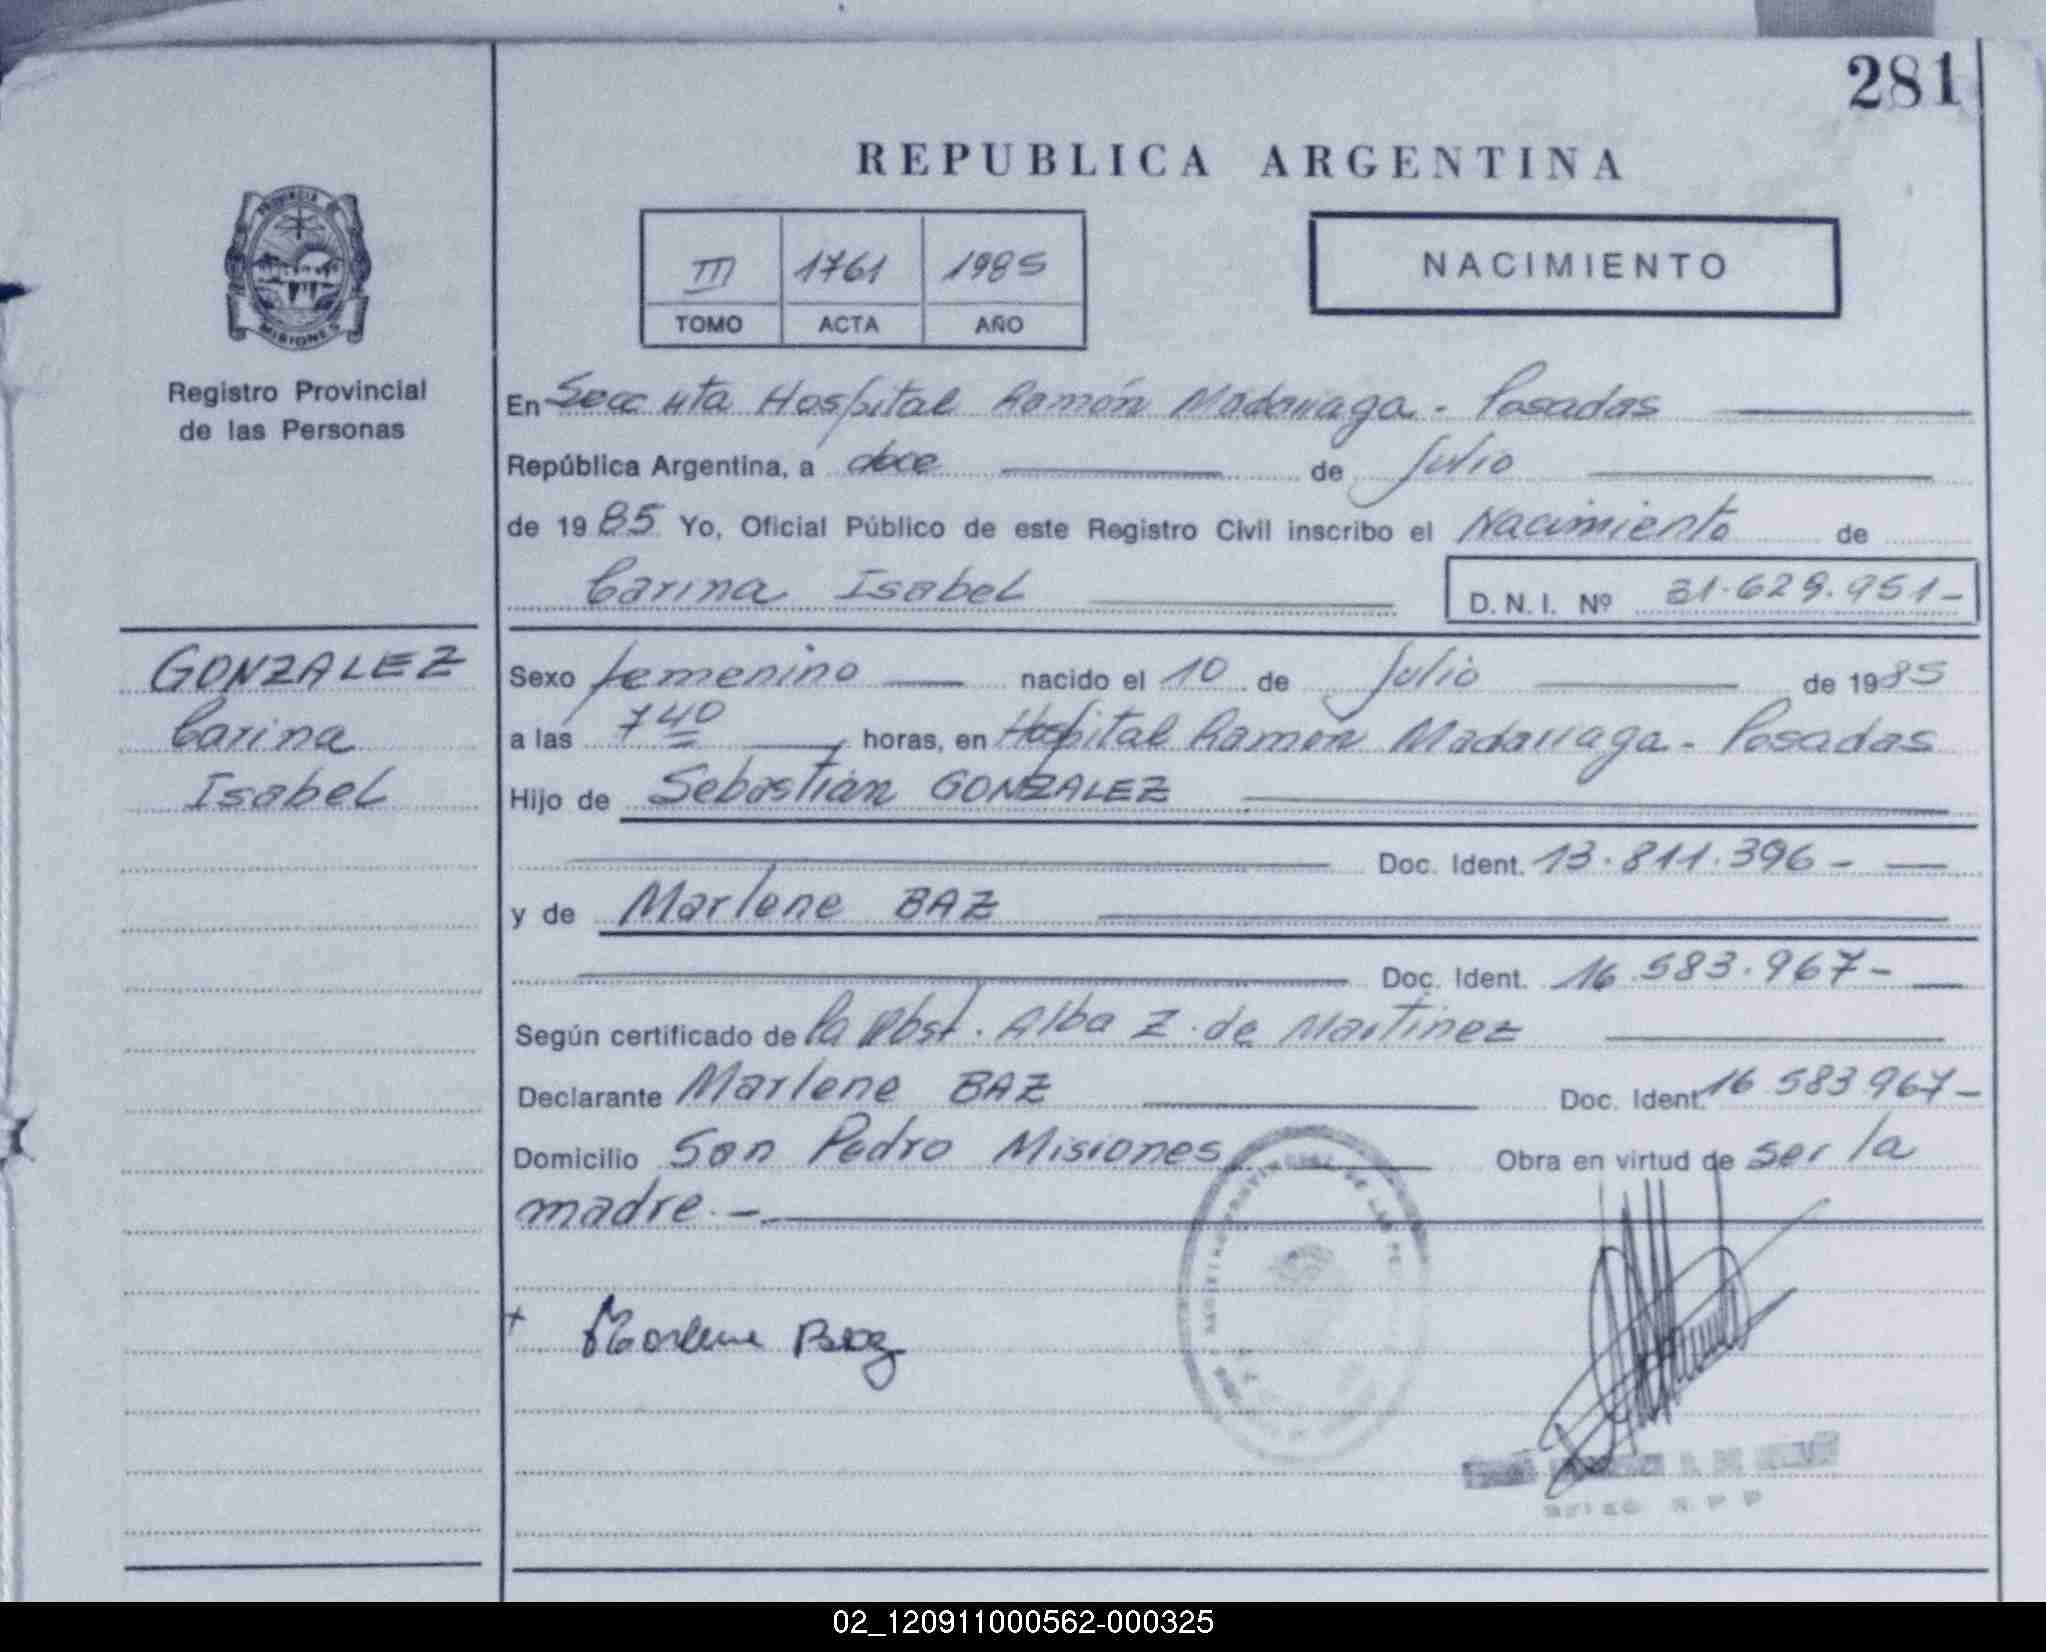 281
REPUBLICA ARGENTINA
PROVINCIA DE
MISIONES
Registro Provincial
de las Personas
III 1761 1985
TOMO ACTA AÑO
NACIMIENTO
En Secc 4ta Hospital Ramón Madariaga - Posadas
República Argentina, a doce de Julio
de 1985 Yo, Oficial Público de este Registro Civil inscribo el Nacimiento de
Carina Isabel D.N.I. Nº 31.629.951-
GONZALEZ
Carina
Isabel
Sexo femenino nacido el 10 de Julio de 1985
a las 7 40 horas, en Hospital Ramón Madariaga - Posadas
Hijo de Sebastián GONZALEZ
Doc. Ident. 13.811.396-
y de Marlene BAZ
Doc. Ident. 16.583.967-
Según certificado de la Obst. Alba Z. de Martinez
Declarante Marlene BAZ Doc. Ident. 16 583 967-
Domicilio San Pedro Misiones Obra en virtud de ser la
madre.-
Marlene Baz
02_120911000562-000325